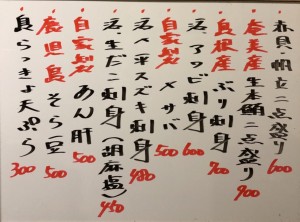 赤貝、帆立二点盛り 600
奄美産 生本鮪二点盛り 900
島根産 ぶり刺身 700
活、アワビ刺身 600
自家製 〆サバ 500
活〆平スズキ刺身 480
活、生だこ刺身(胡麻塩) 450
自家製 あん肝 500
鹿児島 そら豆 500
島らっきょ天ぷら 300